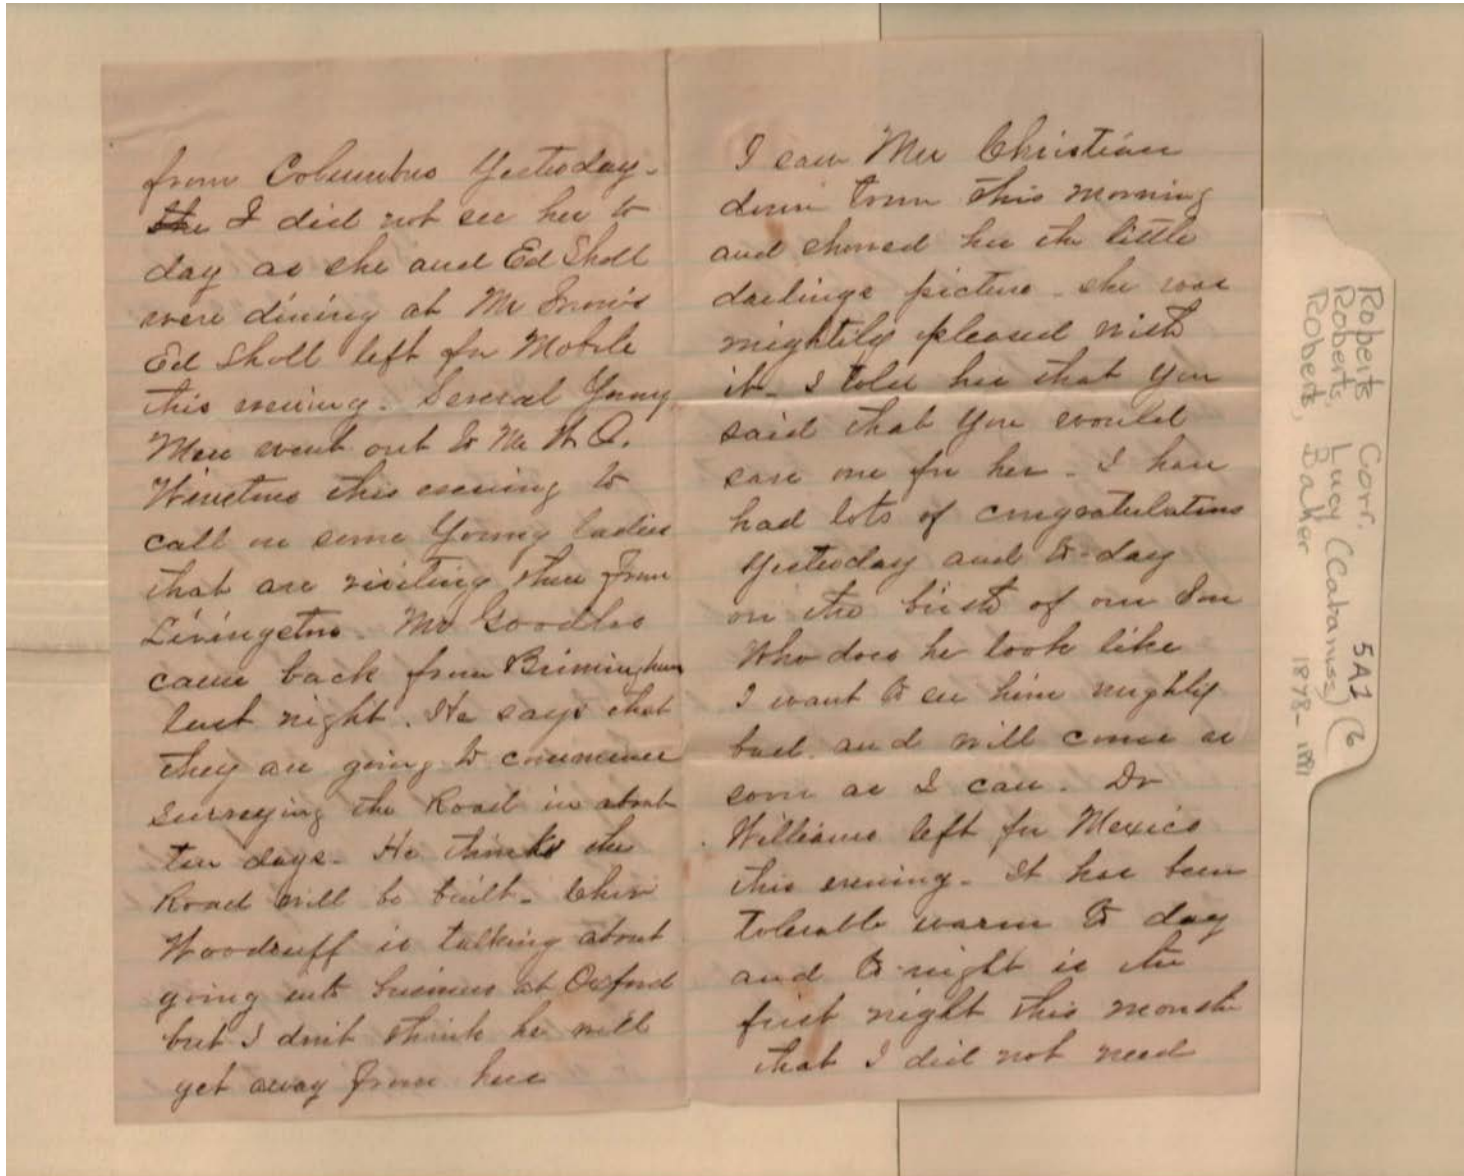 from Columbus Yesterday.
She I did not see her to
day as she and Ed Sholl
were dining at Mr Irwin's
Ed Sholl left for Mobile
this evening. Several Young
Men went out to Mr W. O.
Winstons this evening to
call on some Young ladies
that are visiting there from
Livingston. Mr Goodloe
came back from Birmingham
last night. He says that
they are going to commence
surveying the Road in about
ten days. He thinks the
Road will be built.
Woodruff is talking about
going into business at Oxford
but I don't think he will
get away from here
I saw Mrs Christian
down town this morning
and showed her the little
darlings picture. she was
mightily pleased with
it. I told her that you
said that you would
save one for her. I have
had lots of congratulations
Yesterday and to-day
on the birth of our Son
Who does he look like
I want to see him mighty
bad. and will come as
soon as I can. Dr
Williams left for Mexico
this evening. It has been
tolerable warm to day
and to-night is the
first night this month
that I did not need
Roberts Corr. 5A1 (6
Roberts, Lucy (Cabaniss)
Roberts, Baker 1878-1881